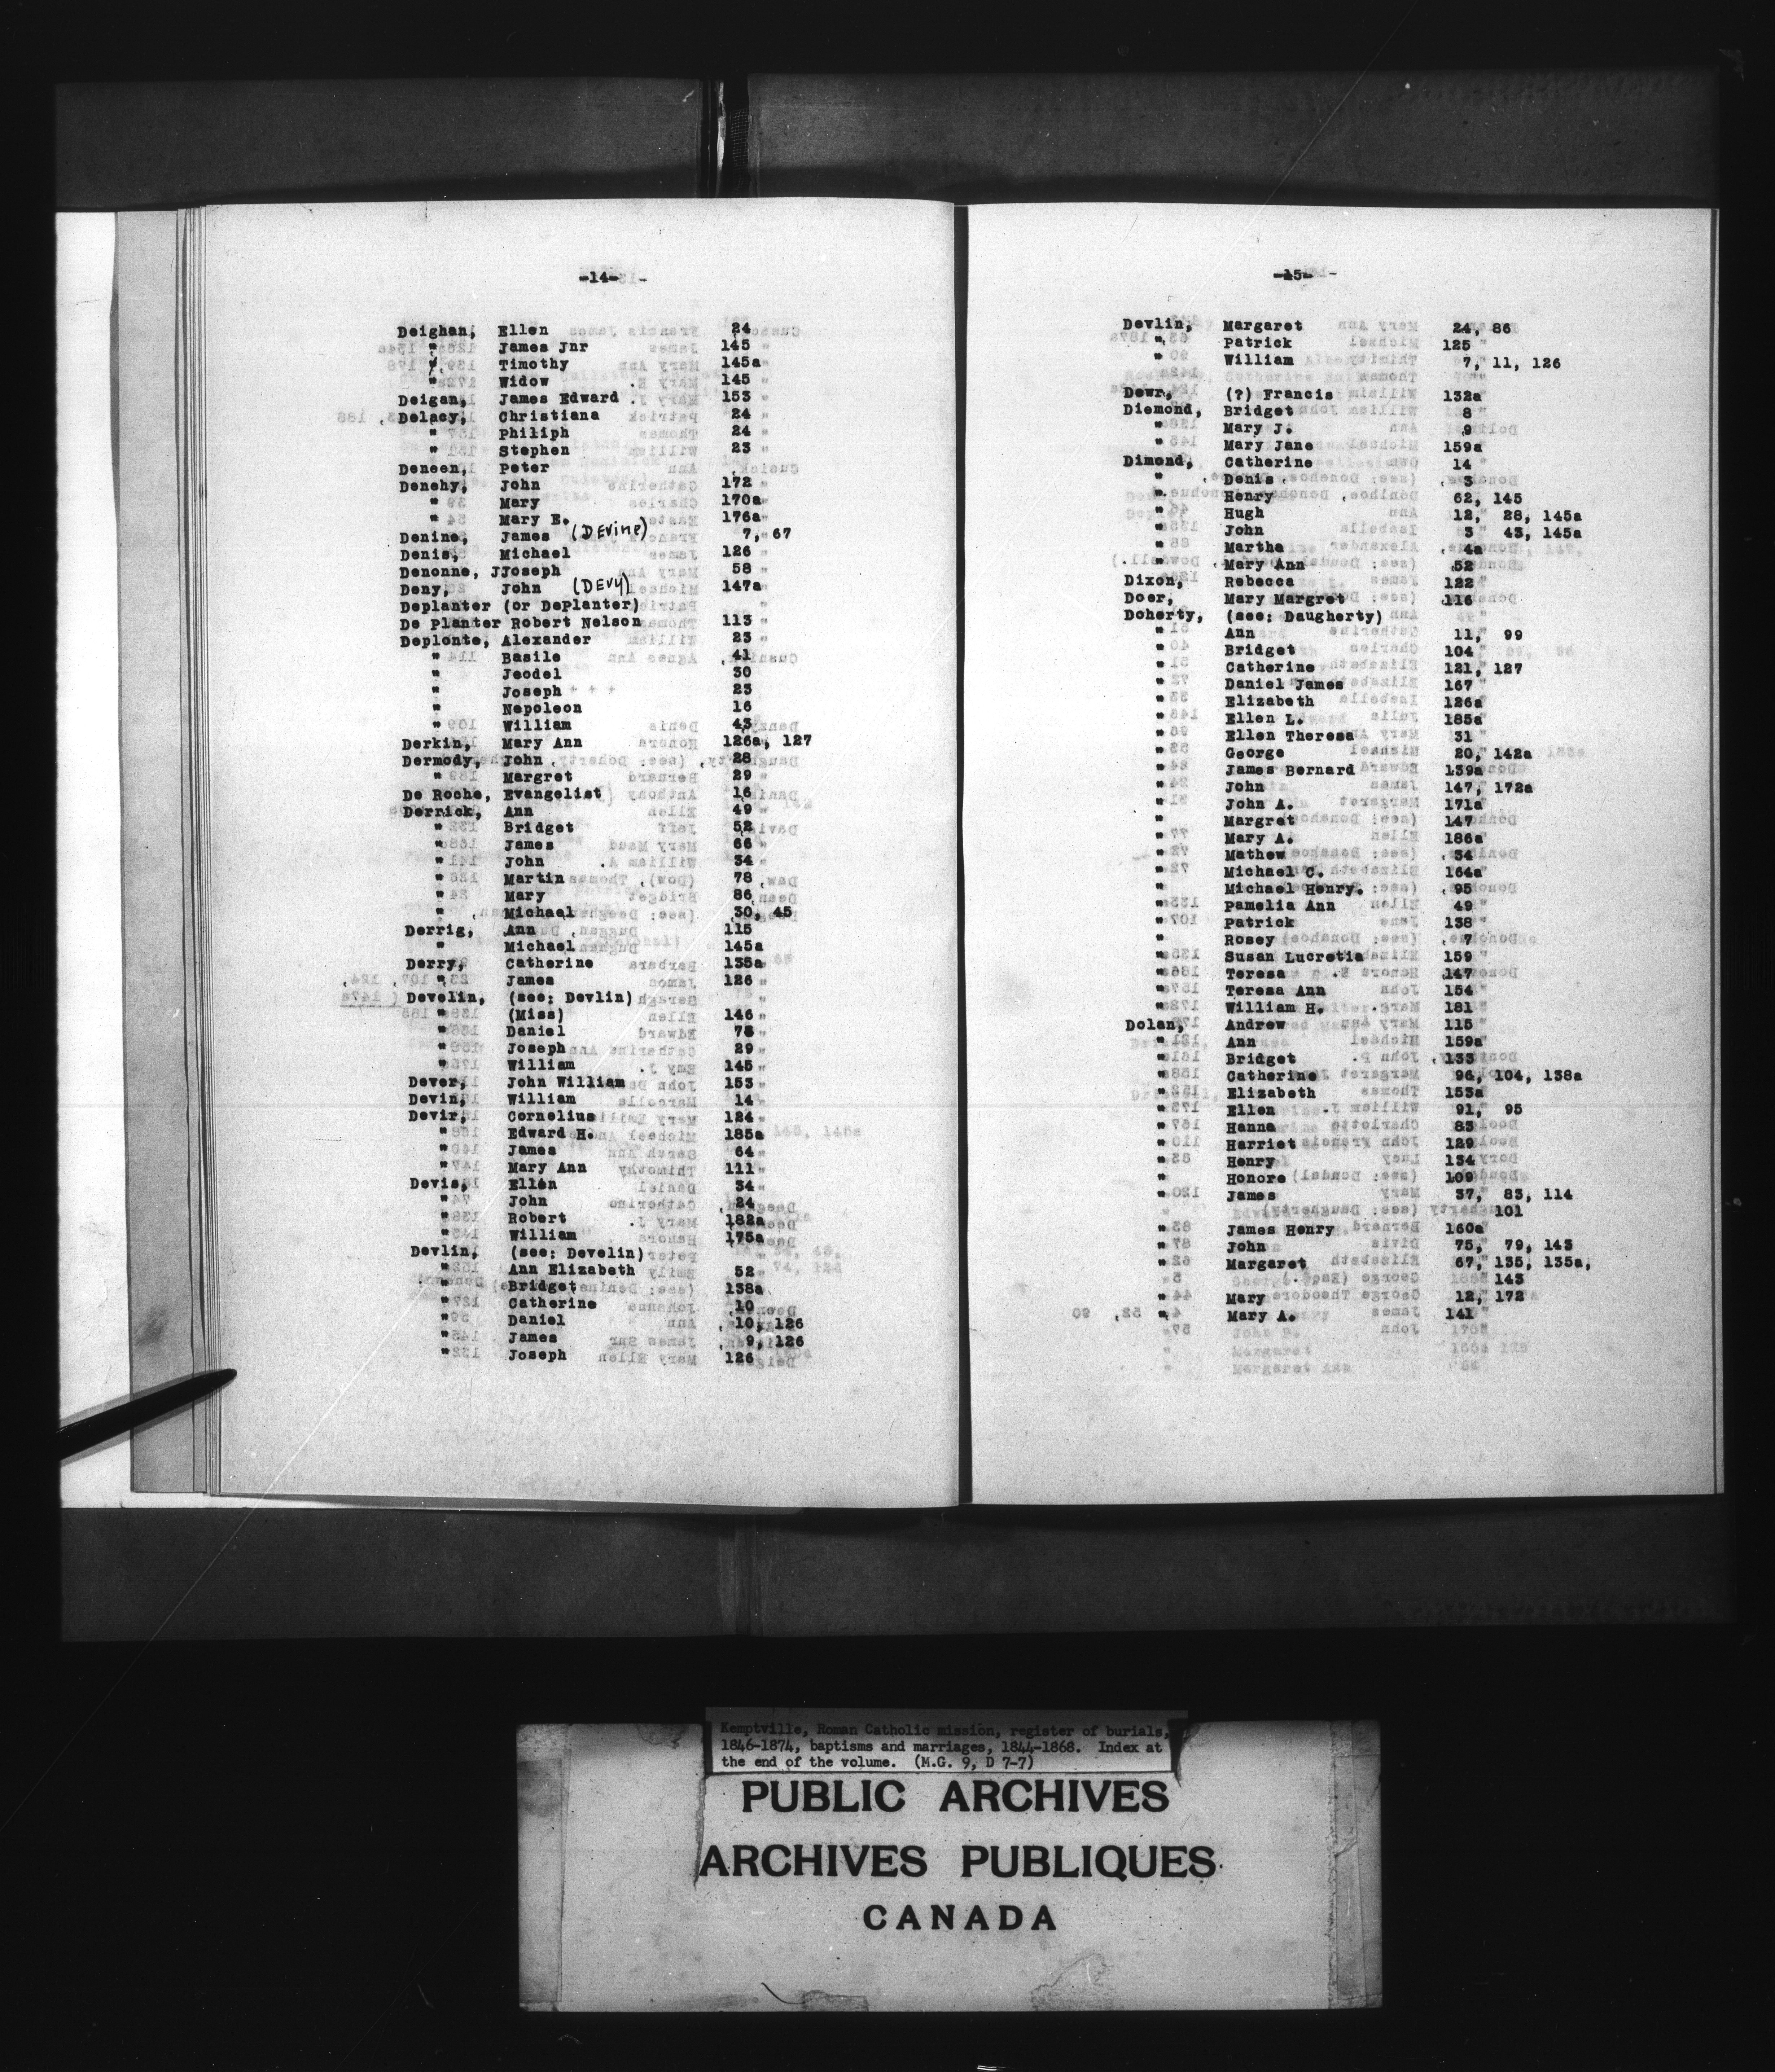 -14-
Deighan, Ellen 24
" James Jnr 145
" Timothy 145a
" Widow 145
Deigan, James Edward 153
Delacy, Christiana 24
" Philiph 24
" Stephen 23
Deneen, Peter
Denehy, John 172
" Mary 170a
" Mary E. 176a
Denine, James (DEvine) 7, 67
Denis, Michael 126
Denonne, JJoseph 58
Deny, John (DEVY) 147a
Deplanter (or DePlanter)
De Planter Robert Nelson 113
Deplonte, Alexander 23
" Basile 41
" Jeodel 30
" Joseph 23
" Nepoleon 16
" William 43
Derkin, Mary Ann 126a, 127
Dermody, John 28
" Margret 29
De Roche, Evangelist 16
Derrick, Ann 49
" Bridget 52
" James 66
" John 34
" Martin 78
" Mary 86
" Michael 30, 45
Derrig, Ann 115
" Michael 145a
Derry, Catherine 135a
" James 126
Develin, (see: Devlin)
" (Miss) 146
" Daniel
" Joseph 29
" William 145
Dever, John William 153
Devin, William 14
Devir, Cornelius 124
" Edward H. 185a
" James 64
" Mary Ann 111
Devis, Ellen 34
" John 24
" Robert 182a
" William 175a
Devlin, (see: Develin)
" Ann Elizabeth 52
" Bridget 138a
" Catherine 10
" Daniel 10, 126
" James 9, 126
" Joseph 126
-15-
Devlin, Margaret 24, 86
" Patrick 125
" William 7, 11, 126
Dewr, (?) Francis 132a
Diemond, Bridget 8
" Mary J. 9
" Mary Jane 159a
Dimond, Catherine 14
" Denis 3
" Henry 62, 145
" Hugh 12, 28, 145a
" John 3 43, 145a
" Martha 4a
" Mary Ann 52
Dixon, Rebecca 122
Doer, Mary Margret 116
Doherty, (see: Daugherty)
" Ann 11, 99
" Bridget 104
" Catherine 121, 127
" Daniel James 167
" Elizabeth 126a
" Ellen L. 185a
" Ellen Theresa 31
" George 20, 142a
" James Bernard 139a
" John 147, 172a
" John A. 171a
" Margret 147
" Mary A. 186a
" Mathew 34
" Michael C. 164a
" Michael Henry. 95
" Pamelia Ann 49
" Patrick 138
" Rosey 7
" Susan Lucretia 159
" Teresa 147
" Teresa Ann 154
" William H. 181
Dolan, Andrew 115
" Ann 159a
" Bridget 133
" Catherine 96, 104, 138a
" Elizabeth 153a
" Ellen 91, 95
" Hanna 83
" Harriet 129
" Henry 134
" Honore 109
" James 37, 83, 114
101
" James Henry 160a
" John 75, 79, 143
" Margaret 67, 135, 135a,
143
" Mary 12, 172
" Mary A. 141
Kemptville, Roman Catholic mission, register of burials,
1846-1874, baptisms and marriages, 1844-1868. Index at
the end of the volume. (M.G. 9, D 7-7)
PUBLIC ARCHIVES
ARCHIVES PUBLIQUES
CANADA